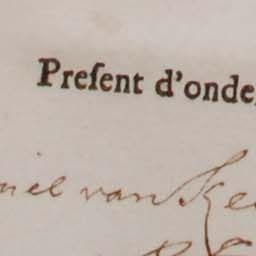 Preſent d'onde
niel van Ke